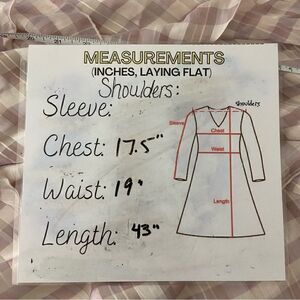 MEASUREMENTS
(INCHES, LAYING FLAT)
Shoulders:
Sleeve:
Chest: 17.5"
Waist: 19"
Length: 43"
Shoulders
Sleeve
Chest
Waist
Length